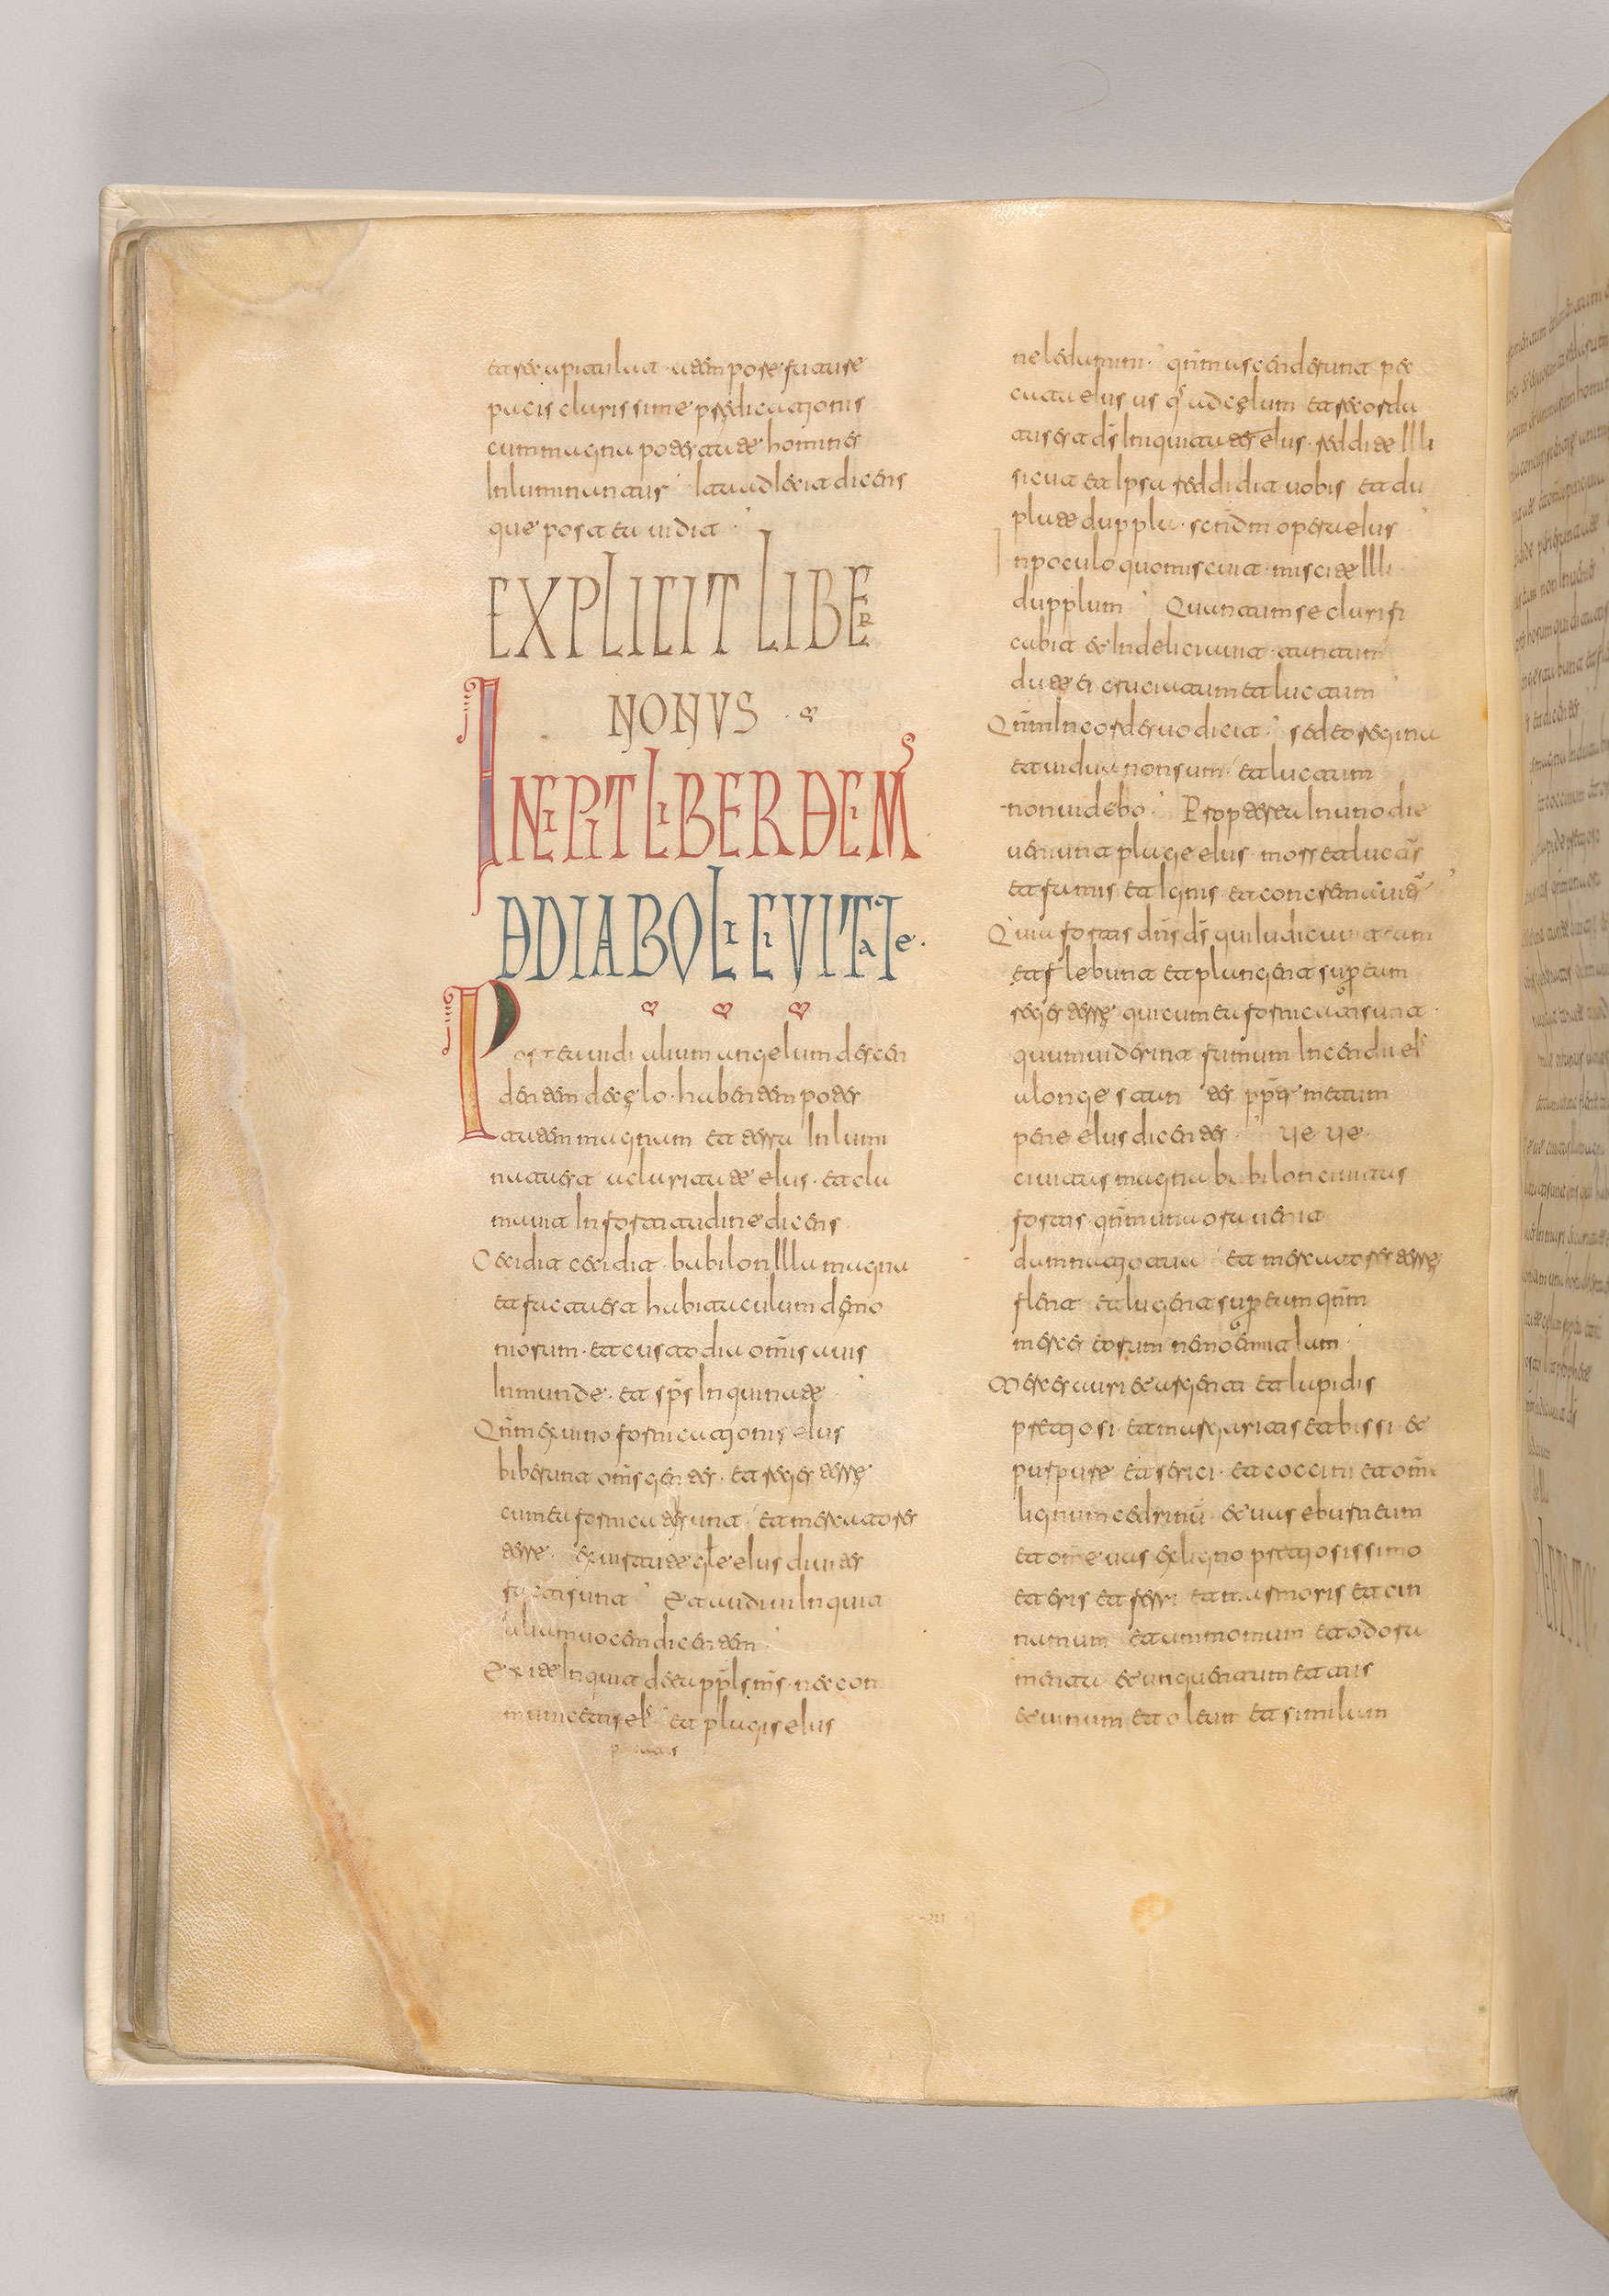 et recapitulat
pacis clarissime predicationis
cum magna potestate homines
Inluminantis dicens
que post ea uidit
EXPLICIT LIBER
NONVS
INCIPIT LIBER DECIMVS
DE DIABOLI EVITATE
Post ea uidi alium angelum descen
dentem de cęlo · habentem potes
tatem magnam et terra Inlumi
nata erat a claritate eius · et cla
mauit In fortitudine dicens
Cecidit cecidit · babilon Illa magna
et facta est habitaculum dęmo
niorum · et custodia om̄is auis
Inmunde · et sp̄s Inquinate
Qm̄ ex uino fornicationis eius
biberunt om̄s gentes · et reges terrę
cum ea fornicati sunt et mercatores
terre · ex uirtute gl̄e eius diuites
facti sunt Et audiui Inquit
aliam uocem dicentem
Exite Inquit de ea pp̄ls m̄s · ne con
municetis et plagis eius
ne ledamini · qm̄ ascenderunt pec
cata eius usq; ad cęlum et recorda
tus est d̄s Iniquitates eius · reddite Illi
sicut et Ipsa reddidit uobis et du
plate dupla · scd̄m opera eius
In poculo quo miscuit · miscite Illi
dupplum Quantum se clarifi
cabit et In deliciis tantum
date ei cruciatum et luctum
Qm̄ In corde suo dicit · sedeo regina
et uidua non sum · et luctum
non uidebo · Propterea In uno die
uenient plage eius · mors et luctus
et famis et Ignis et concremabitur
Quia fortis dn̄s d̄s qui Iudicauit eam
et flebunt et plangent super eam
reges terrę qui cum ea fornicati sunt ·
quum uiderint fumum Incendii ei'
a longe stantes pp̄ter metum
pene eius dicentes · ue ue ·
ciuitas magna babilon ciuitas
fortis · qm̄ una ora uenit
damnatio tua et mercatores terrę
flent et lugent super eam qm̄
merces eorum nemo emit Iam
Merces auri et argenti et lapidis
pretiosi et margaritis et bissi et
purpure et serici · et coccini et om̄e
lignum cedrinū et uas eburneum
et om̄e uas ex ligno pretiosissimo
et eris et ferri et marmoris et cin
namum et ammomum et odora
menta et unguentum et turis
et uinum et oleum et similam